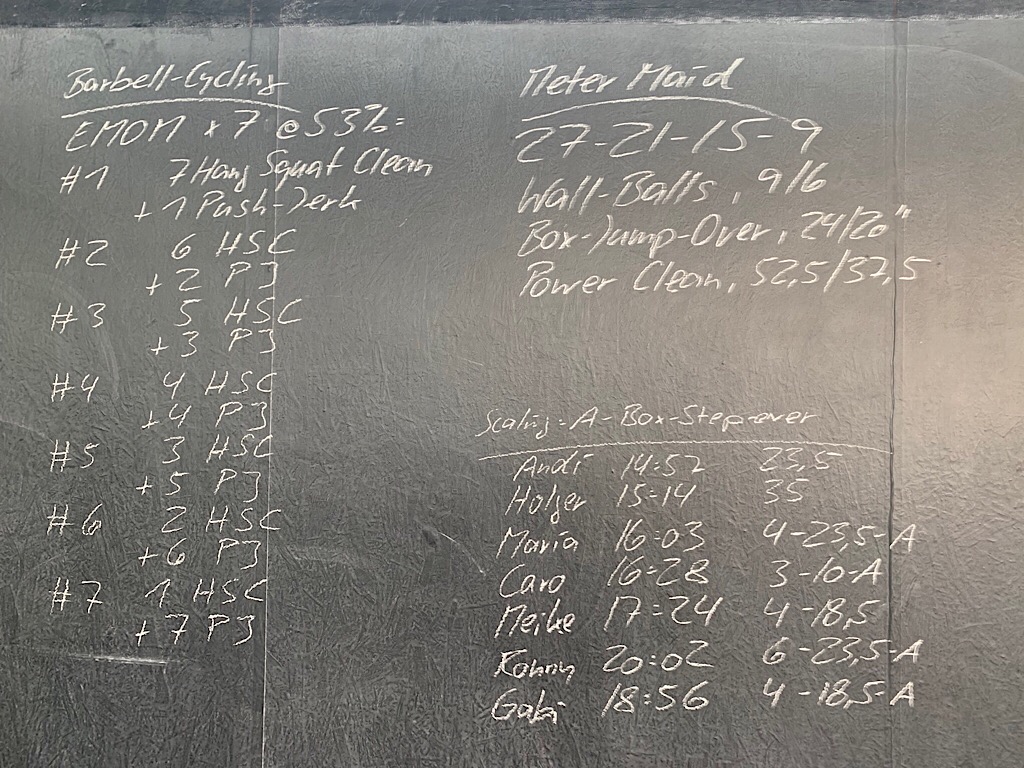 Barbell-Cycling
EMOM x 7 @ 53%:
#1 7 Hang Squat Clean
+ 1 Push-Jerk
#2 6 HSC
+ 2 PJ
#3 5 HSC
+ 3 PJ
#4 4 HSC
+ 4 PJ
#5 3 HSC
+ 5 PJ
#6 2 HSC
+ 6 PJ
#7 1 HSC
+ 7 PJ
Meter Maid
27-21-15-9
Wall-Balls, 9/6
Box-Jump-Over, 24/20"
Power Clean, 52,5/37,5
Scaling: A-Box-Step-over
Andi 14:52 23,5
Holger 15:14 35
Maria 16:03 4-23,5-A
Caro 16:28 3-10-A
Meike 17:24 4-18,5
20:02 6-23,5-A
Gabi 18:56 4-18,5-A